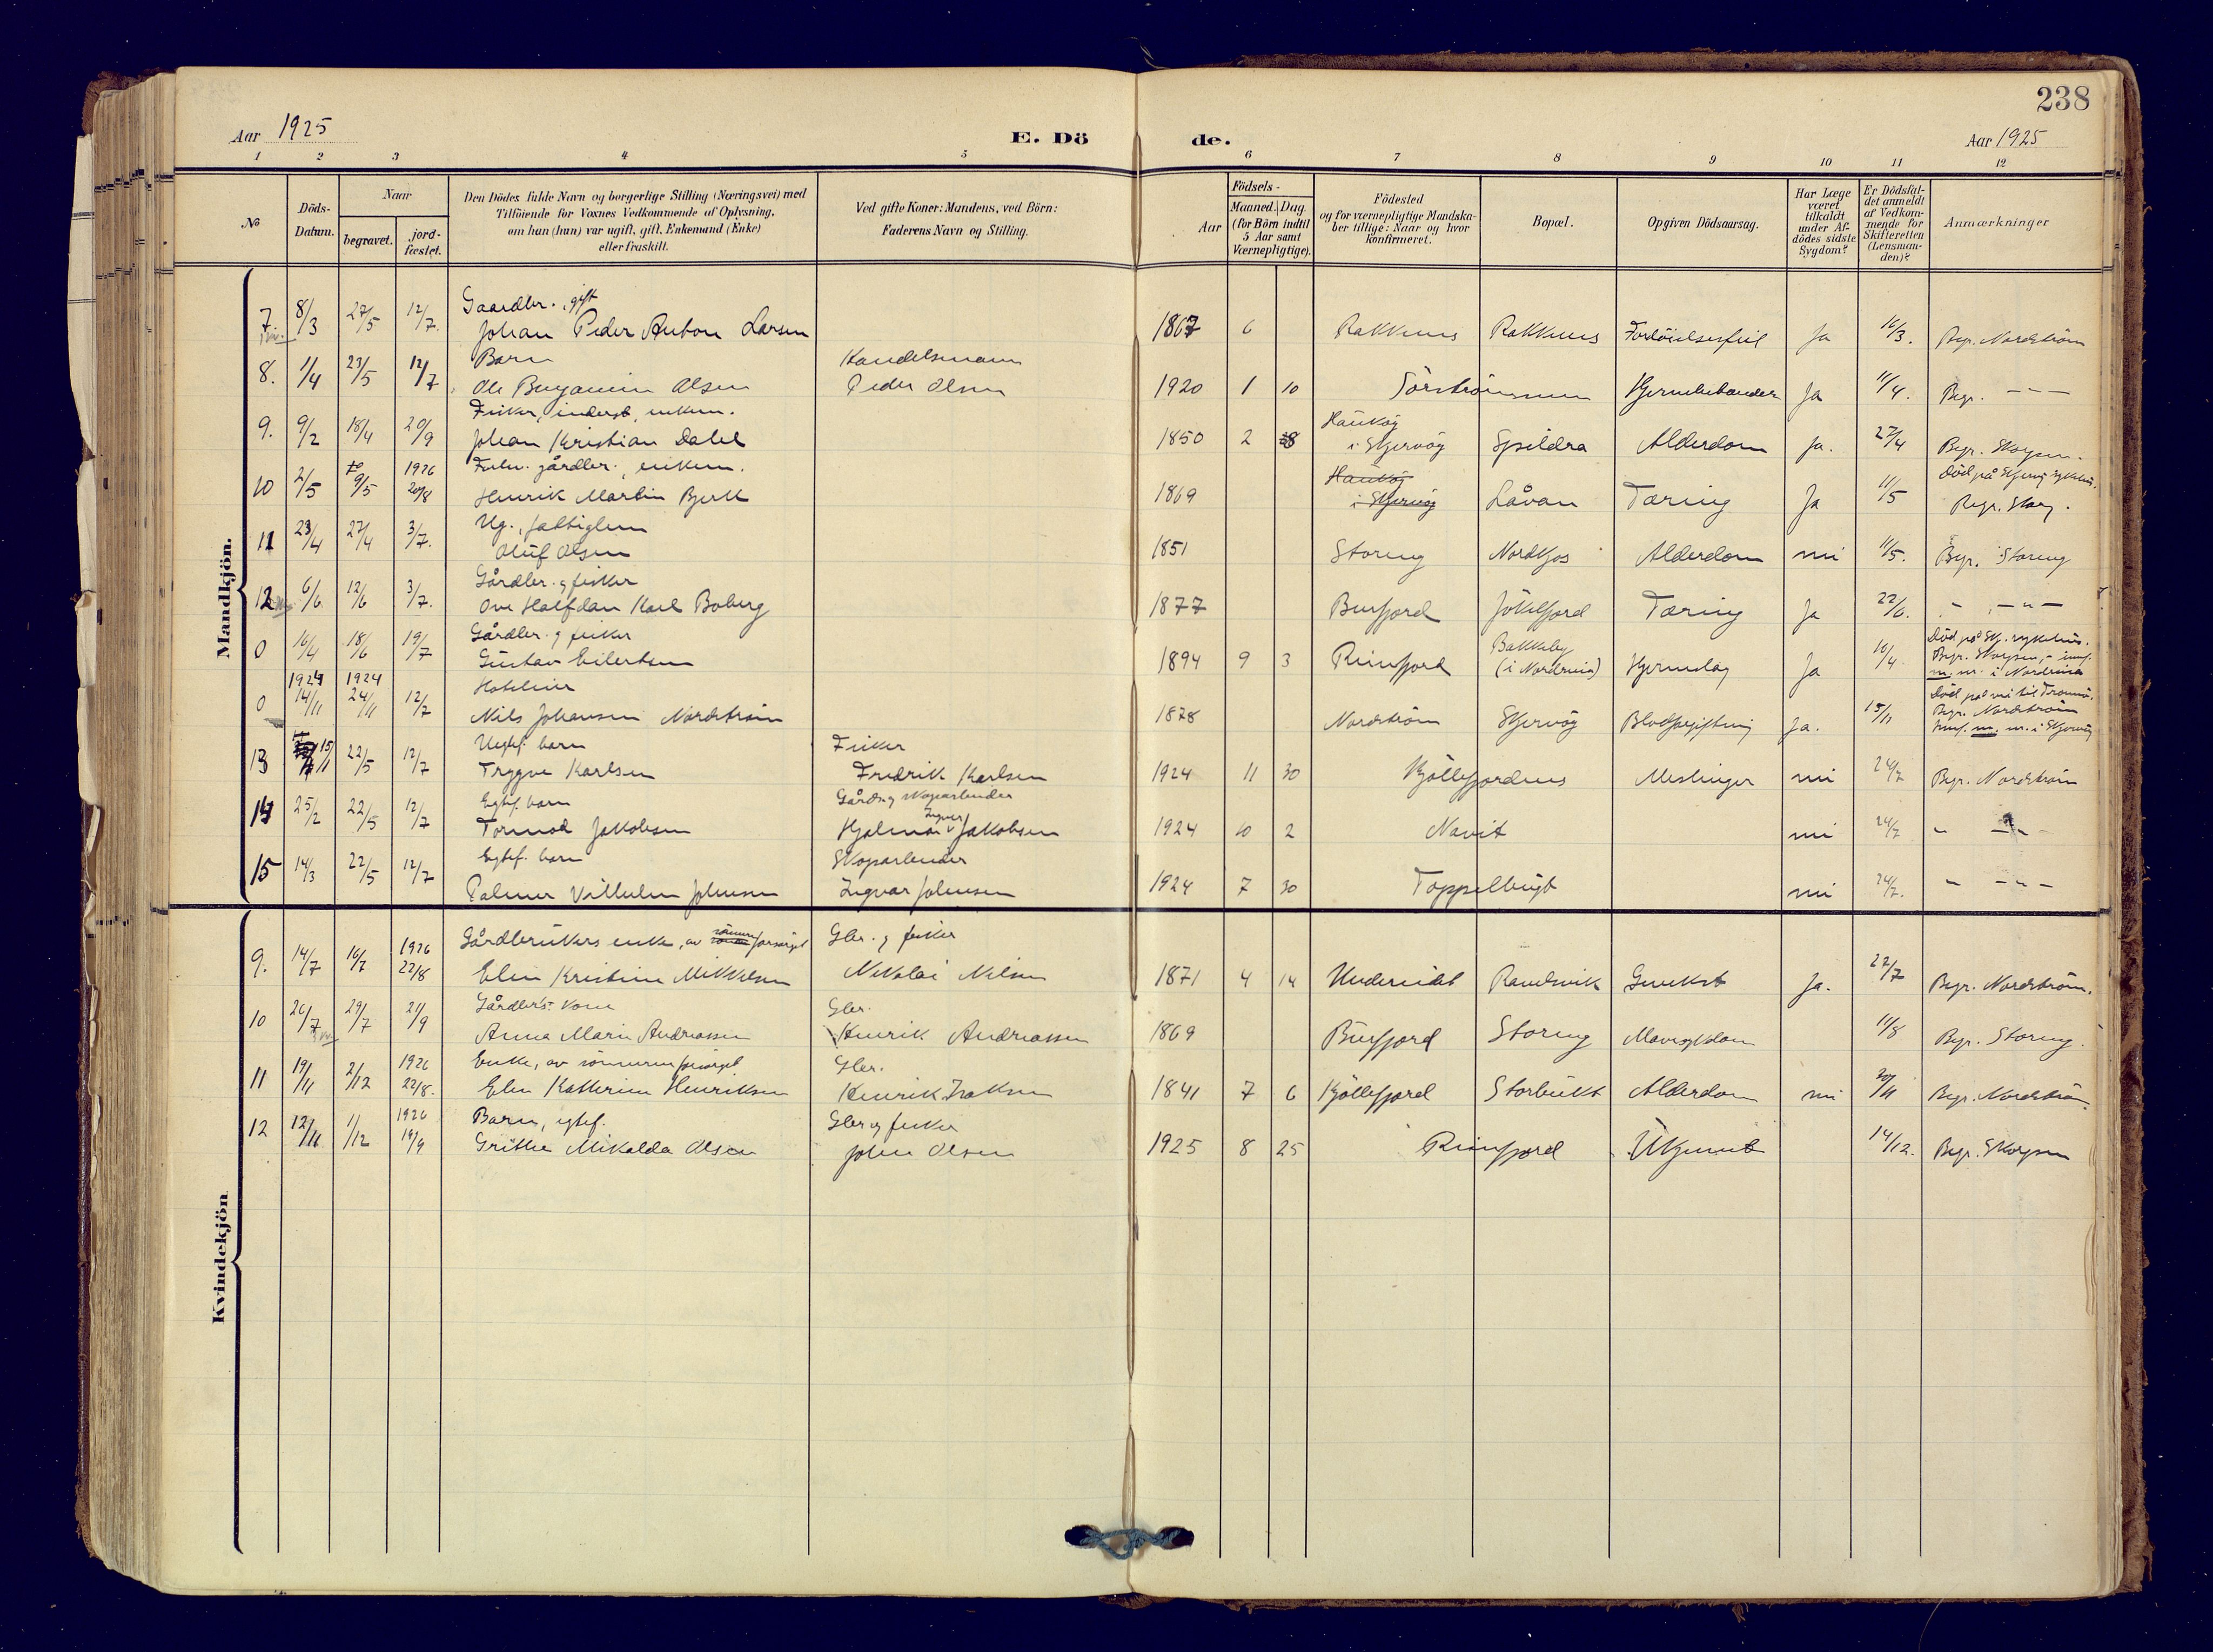 238
Aar 1925
E. Dö de.
Aar 1925
1 2 3 4 5 6 7 8 9 10 11 12
No
Döds-Datum.
Naar
begravet.
jord-fæstet.
Den Dödes fulde Navn og borgerlige Stilling (Næringsvei) med
Tilföiende for Voxnes Vedkommende af Oplysning,
om han (hun) var ugift, gift, Enkemand (Enke)
eller fraskilt.
Ved gifte Koner: Mandens, ved Börn:
Faderens Navn og Stilling.
Födsels-
Aar
Maaned. Dag.
(for Börn indtil
5 Aar samt
Værnepligtige).
Födested
og for værnepligtige Mandska-
ber tillige: Naar og hvor
konfirmeret.
Bopæl.
Opgiven Dödsaarsag.
Har Læge
været
tilkaldt
under Af-
dödes sidste
Sygdom?
Er Dödsfal-
det anmeldt
af Vedkom-
mende for
Skifteretten
(Lensman-
den)?
Anmærkninger
Mandkjön.
Gaardbr. gift
7 8/3 27/5 12/7. Johan Peder Anton Larsen 1867 6 Rakkenes Rakkenes Fordöielsesfeil Ja 16/3. Begr. Nordström
Barn Handelsmann
8. 1/4 23/5 12/7 Ole Benjamin Olsen Peder Olsen 1920 1 10 Sörströmmen Hjernebetændelse Ja 11/4. Begr. - - -
Fisker, inderst, enkem. Haukøy
9. 9/2 18/4 20/9 Johan Kristian Dahl 1850 2 28 i Skjervöy Spildra Alderdom ja. 27/4 Begr. Skorpen.
1926 Forhv. gårdbr. enkem. Haukøy Död på Skjervöy sykehus.
10 2/5 9/5 20/8 Henrik Martin Bjerk 1869 i Skjervöy Låvan Tæring Ja 11/5 Begr. Skorp.
Ug., fattiglem
11 23/4 27/4 3/7. Oluf Olsen 1851 Storeng Nordkjos Alderdom nei 11/5. Begr. Storeng
Gårdbr. og fisker
12 6/6 12/6 3/7. Ove Halfdan Karl Boberg 1877 Burfjord Jökelfjord Tæring Ja 22/6. - - " -
Gårdbr. og fisker Bakkeby Död på Skj. sykehus.
0 16/4 18/6 19/7 Gustav Eilertsen 1894 9 3 Reinfjord (i Nordreisa) Hjerneslag Ja 16/4. Begr. Skorpen, - innf.
m. nr. i Nordreisa
1924 1924 Hotelleier Död på vei til Tromsö.
0 14/11 24/11 12/7 Nils Johansen Nordström 1878 Nordström Skjervöy Blodforgiftning Ja. 15/11 Begr. Nordström
Innf. m. nr. i Skjervöy
Uegtef. barn Fisker
13 15/11 22/5 12/7 Trygve Karlsen Fredrik Karlsen 1924 11 30 Kjöllefjordnes Meslinger nei 24/7 Begr. Nordström
Egtef. barn Gårds og skogarbeider
14 25/2 22/5 12/7 Tormod Jakobsen Hjalmar Ingvar Jakobsen 1924 10 2 Navit nei 24/7 - - " -
Egtef. barn Skogarbeider
15 14/3 22/5 12/7 Palmer Vilhelm Johnsen Ingvar Johnsen 1924 7 30 Toppelbugt nei 24/7. - - " -
Kvindekjön
1926 Gårdbrukers enke, av sönnene forsörget Gbr. og fisker
9. 14/7 16/7 22/8 Elen Kristine Mikkelsen Nikolai Nilsen 1871 4 14 Undereidet Ravelsvik Ja. 22/7 Begr. Nordström.
Gårdbr's kone Gbr.
10 26/7 29/7 21/9 Anna Marie Andreassen Henrik Andreassen 1869 Burfjord Storeng Mavesykdom 11/8 Begr. Storeng.
1926 Enke, av sönnene forsörget Gbr.
11 19/11 2/12 22/8. Elen Katherine Henriksen Henrik Isaksen 1841 7 6 Kjöllefjord Storbukt Alderdom nei 30/11 Begr. Nordström.
1926 Barn, egtef. Gbr og fisker
12 12/11 1/12 19/9 Grethe Mikalda Olsen John Olsen 1925 8 25 Reinfjord Ukjent 14/12. Begr. Skorpen